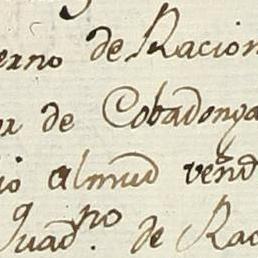 erno de Racion
or de Cobadonga
io almud vend
Quad.no de Rac